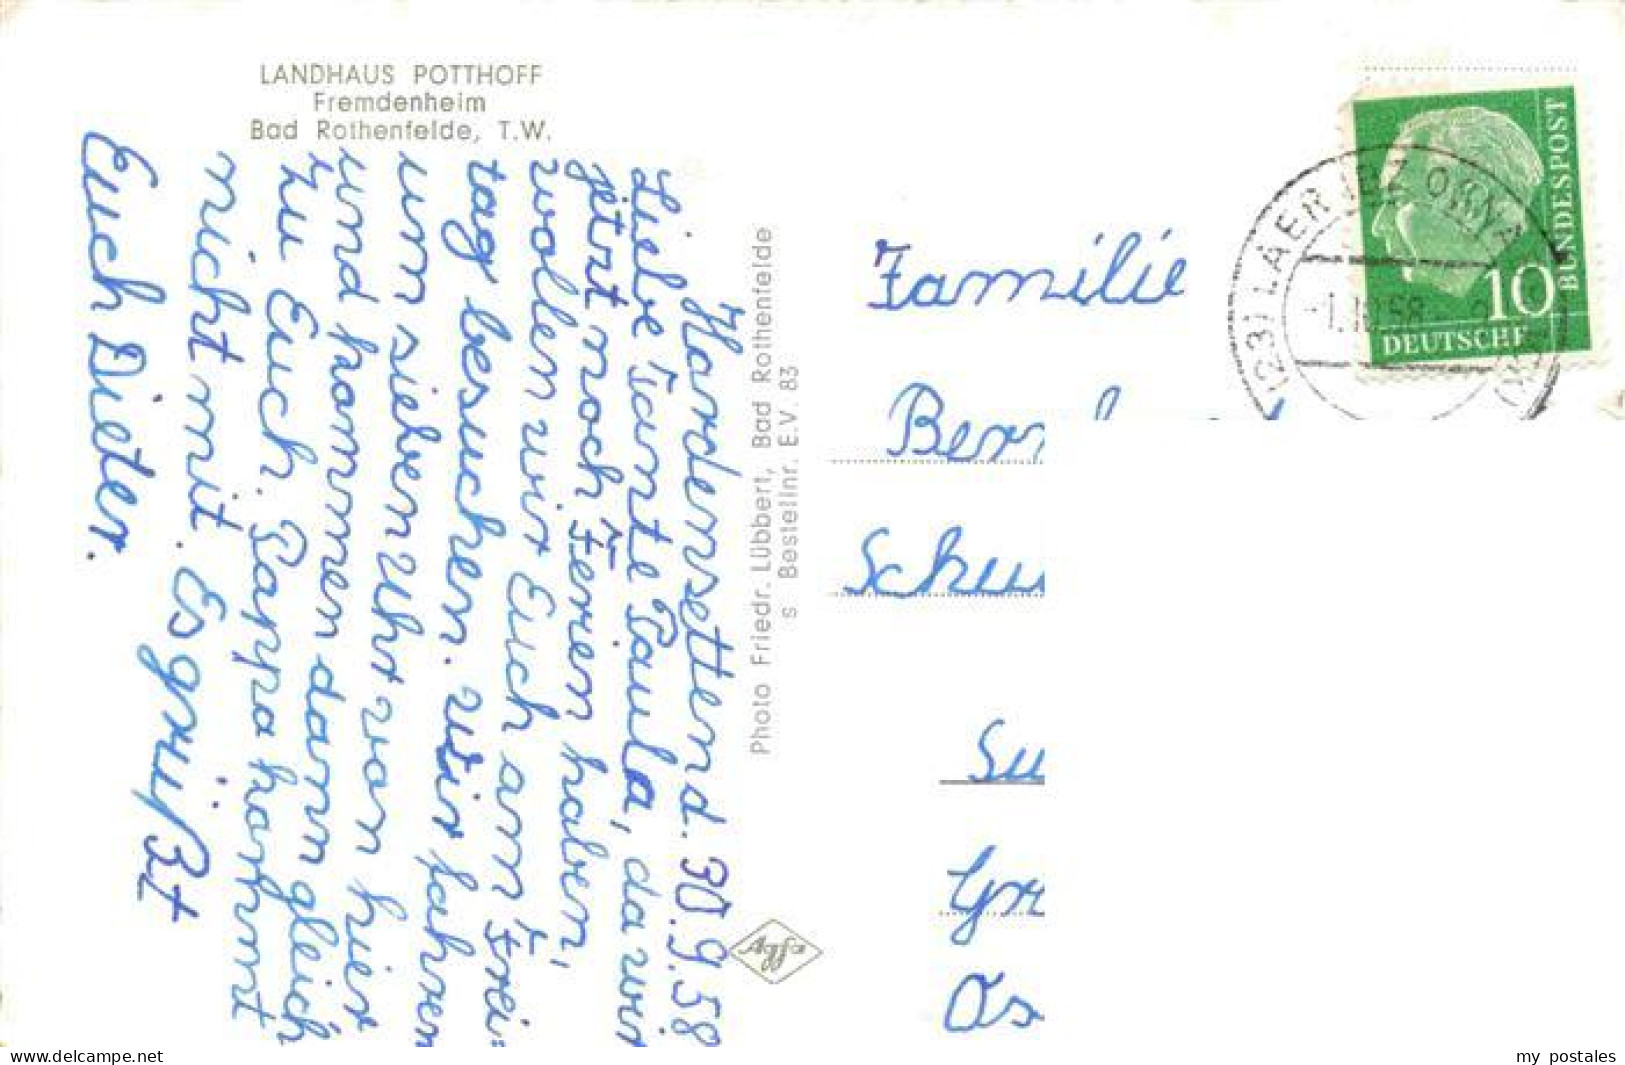 LANDHAUS POTTHOFF
Fremdenheim
Bad Rothenfelde, T.W.
Hardensetten d. 30.9.58
Liebe Tante Paula, da wir
jetzt noch Ferien haben,
wollen wir Euch am Frei=
tag besuchen. Wir fahren
um sieben Uhr von hier
und kommen dann gleich
zu Euch. Pappa kommt
nicht mit. Es grüßt
Euch Dieter.
Photo Friedr. Lübbert, Bad Rothenfelde
s Bestellnr. E.V. 83
Agfa
Familie
DEUTSCHE
BUNDESPOST
10
(23) LAER
58
delcampe.net
my postales